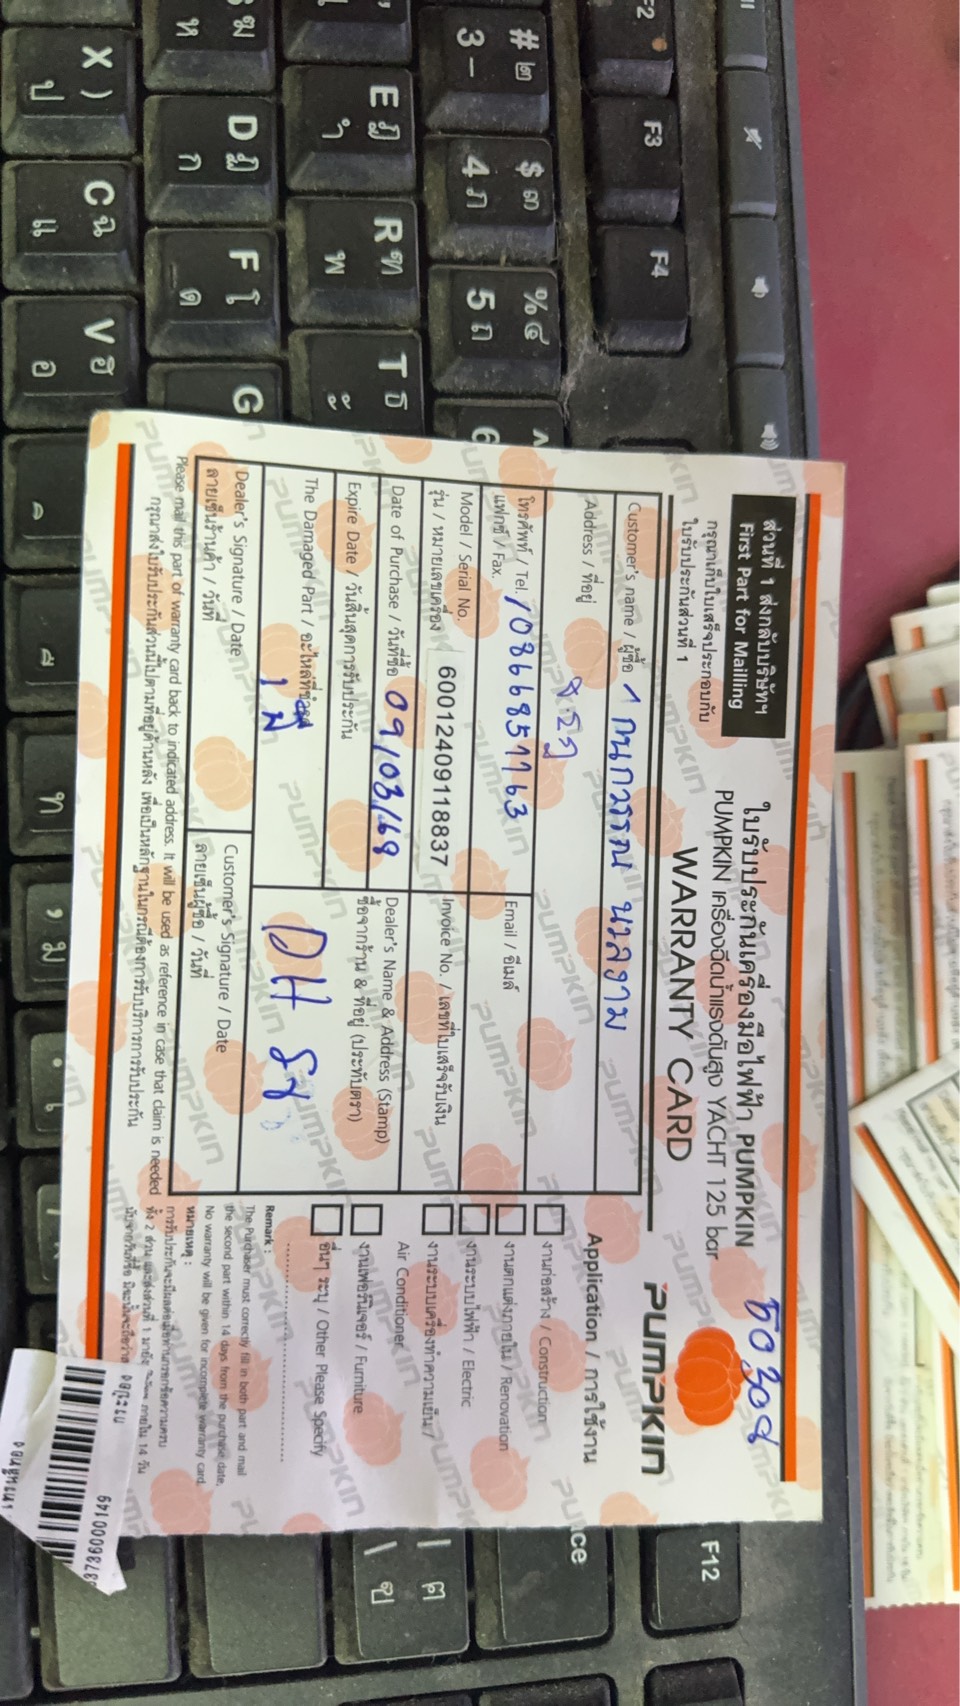 ส่วนที่ 1 ส่งกลับบริษัทฯ
First Part for Mailling
กรุณาเก็บใบเสร็จประกอบกับ
ใบรับประกันส่วนที่ 1
ใบรับประกันเครื่องมือไฟฟ้า PUMPKIN
PUMPKIN เครื่องฉีดน้ำแรงดันสูง YACHT 125 bar
WARRANTY CARD
PUMPKIN
Customer's name / ผู้ซื้อ กนกวรรณ นวลงาม
Address / ที่อยู่
โทรศัพท์ / Tel.
แฟกซ์ / Fax.
Email / อีเมล์
Model / Serial No.
รุ่น / หมายเลขเครื่อง 60012409118837
Invoice No. / เลขที่ใบเสร็จรับเงิน
Date of Purchase / วันที่ซื้อ 09/03/69
Expire Date / วันสิ้นสุดการรับประกัน
Dealer's Name & Address (Stamp)
ซื้อจากร้าน & ที่อยู่ (ประทับตรา)
The Damaged Part / อะไหล่ที่ชำรุด
1 ปี
DH
Dealer's Signature / Date
ลายเซ็นร้านค้า / วันที่
Customer's Signature / Date
ลายเซ็นผู้ซื้อ / วันที่
Please mail this part of warranty card back to indicated address. It will be used as reference in case that claim is needed
กรุณาส่งใบรับประกันส่วนนี้ไปตามที่อยู่ด้านหลัง เพื่อเป็นหลักฐานในกรณีต้องการรับบริการการรับประกัน
Application / การใช้งาน
งานก่อสร้าง / Construction
งานตกแต่งภายใน / Renovation
งานระบบไฟฟ้า / Electric
งานระบบเครื่องทำความเย็น /
Air Conditioner
งานเฟอร์นิเจอร์ / Furniture
อื่นๆ ระบุ / Other Please Specify
Remark :
The Purchaser must correctly fill in both part and mail
the second part within 14 days from the purchase date.
No warranty will be given for incomplete warranty card.
หมายเหตุ :
X ) ป
C ฉ แ
V ฮ อ
D ฏ ก
F โ ด
G
E ฎ ำ
R ฑ พ
T ธ ั
# ๒ 3 -
$ ๓ 4 ภ
% ๔ 5 ถ
^ 6
F2
F3
F4
F12